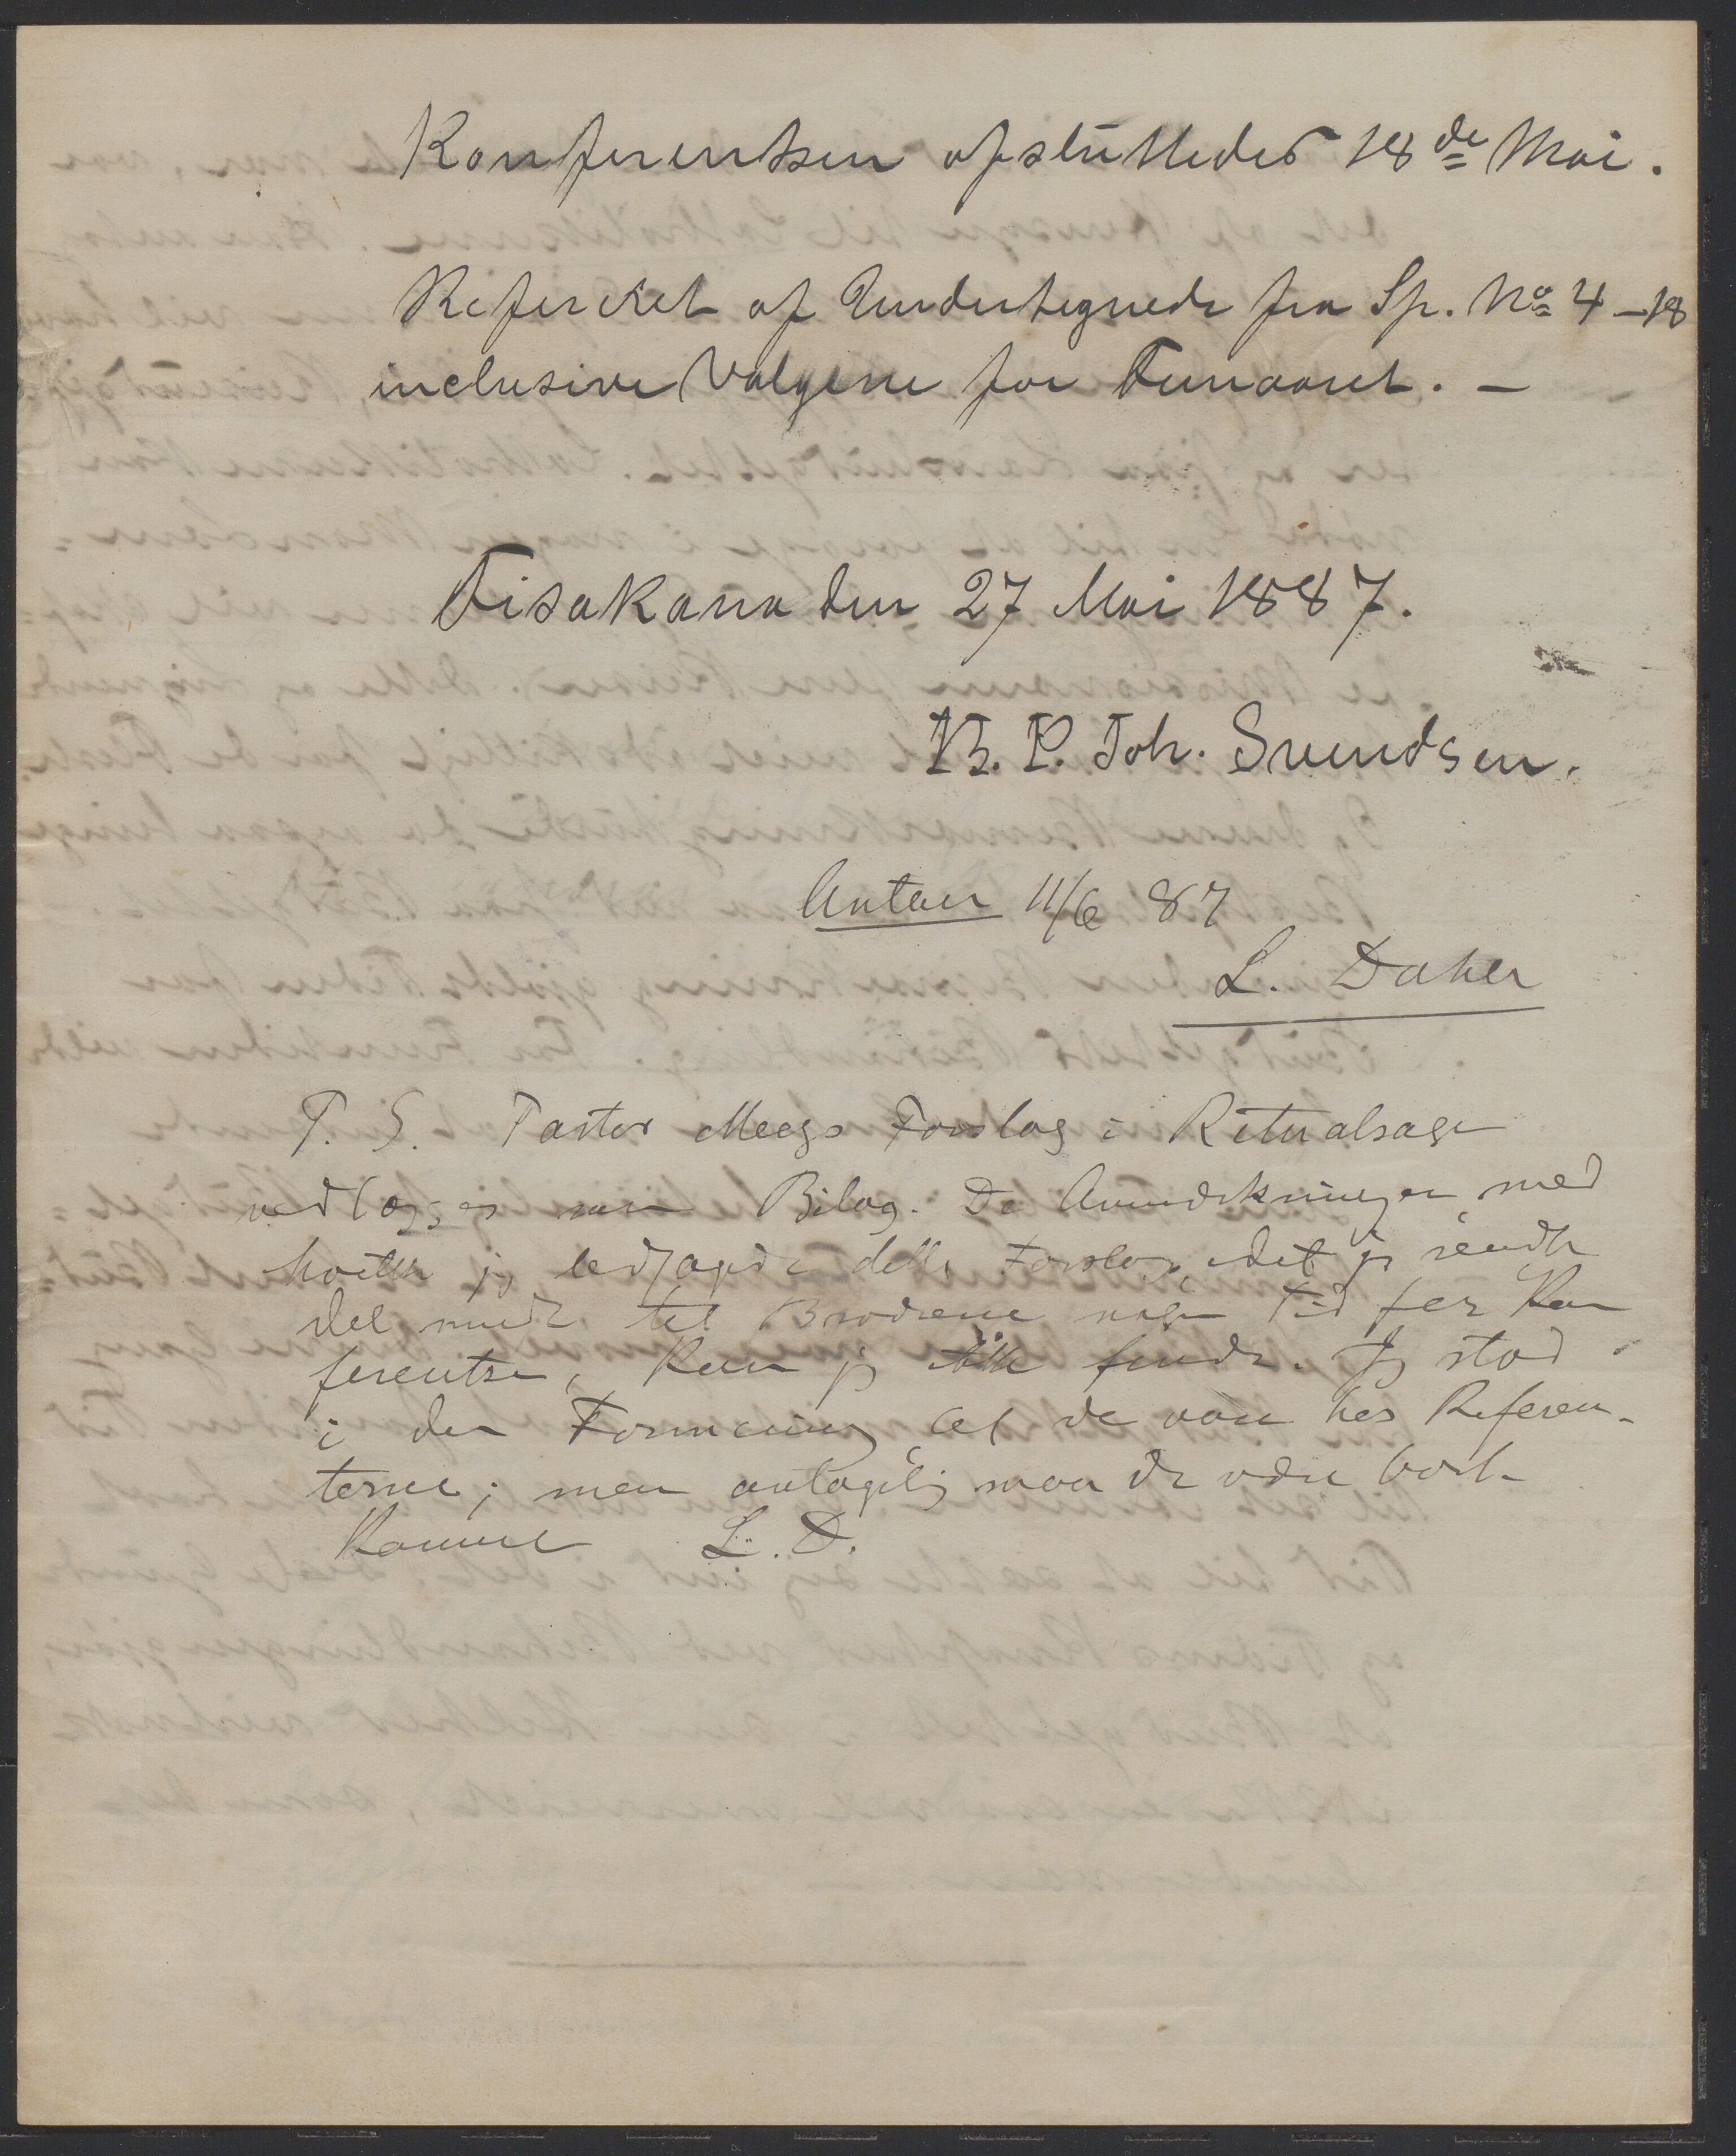 Konferentsen afsluttedes 18de Mai.
Refereret af Undertegnede fra Sp. No 4-18
inclusive Valgene for Femaaret. —
Fisakana den 27 Mai 1887.
B. P. Joh. Svendsen.
Antan 11/6 87
L. Dahle
P. S. Pastor Meegs Forslag i Ritualsagen
vedlægges som Bilag. De Anmærkninger med
hvilke jg ledsagede dette Forslag, idet jg sendte
det rundt til Brødrene nogen Tid før Kon
ferentsen, kan jg ikke finde. Jg stod
i den Formening, at de vare hos Referen-
terne; men antagelig maa de være bort-
komne L. D.